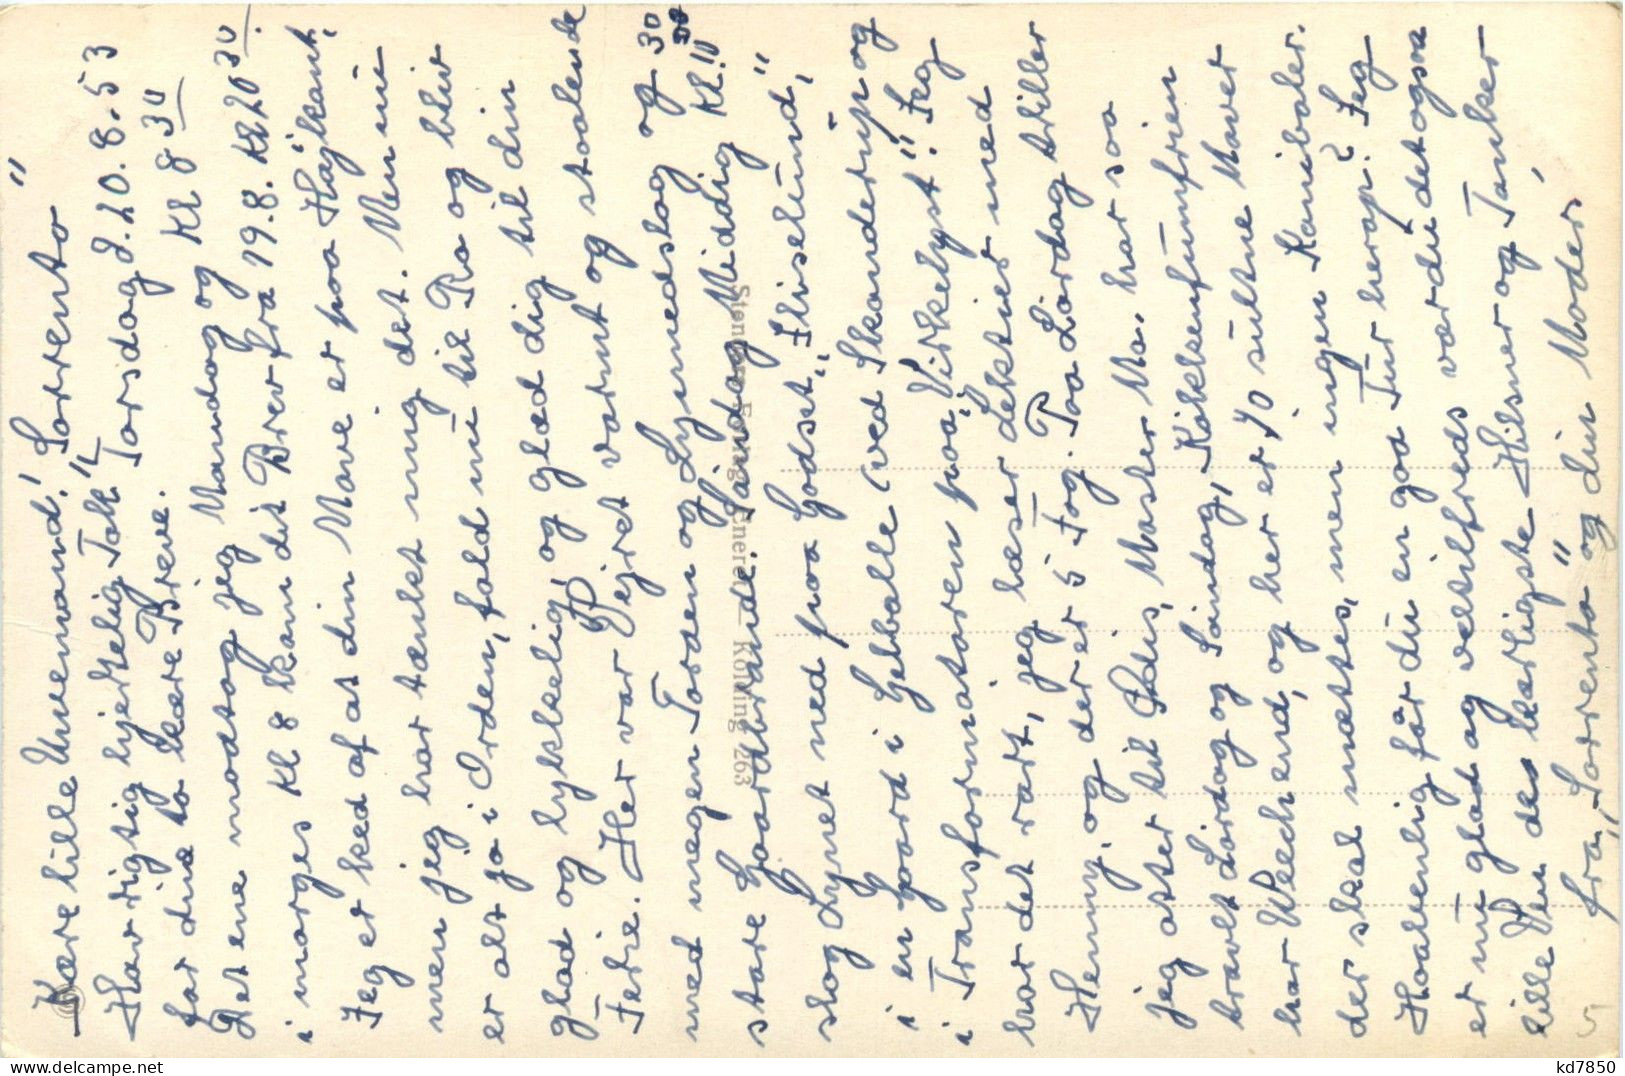 Kære lille Unvemand! "Sorrento"
Hav rigtig hjertelig Tak Torsdag d. 20.8.53
for dine to kære Breve. Kl 8 30
Det ene modtog jeg Mandag og
i morges Kl 8 kom dit Brev fra 19.8. Kl 20 30.
Jeg er ked af at din Mave er paa Højkant,
men jeg har tænkt mig det. Men nu
er alt jo i Orden, fald nu til Ro og bliv
glad og lykkelig, og glæd dig til din
Ferie. Her var Vejret varmt og straalende
med megen Torden og Lynnedslag og 30
store Gaardbrande. Søndag Middag Kl. 10
slog Lynet ned paa Godset, "Eliselund",
i en Gaard i Gelballe (ved Skanderup og
i Transformatoren paa "Virkelyst"!! Jeg
har det rart, jeg læser Lektier med
Henny. og der er 5 Fog. Paa Lørdag stiller
jeg atter til Radis, Master Ma. har saa
travlt Lørdag og Søndag, Køkkenfumfrien
har Weekend, og her er 70 sultne Maver
der skal mættes, men ingen Kanibaler.
Hoabenlig får du en god Tur herop? Jeg
er nu glad og veltilfreds vær du det ogsaa
lille Ven des kærligste Hilsner og Tanker
fra, "Sorrento" og din Moder,
Stenders Forlag Eneret Kolding 263
5
kd7850